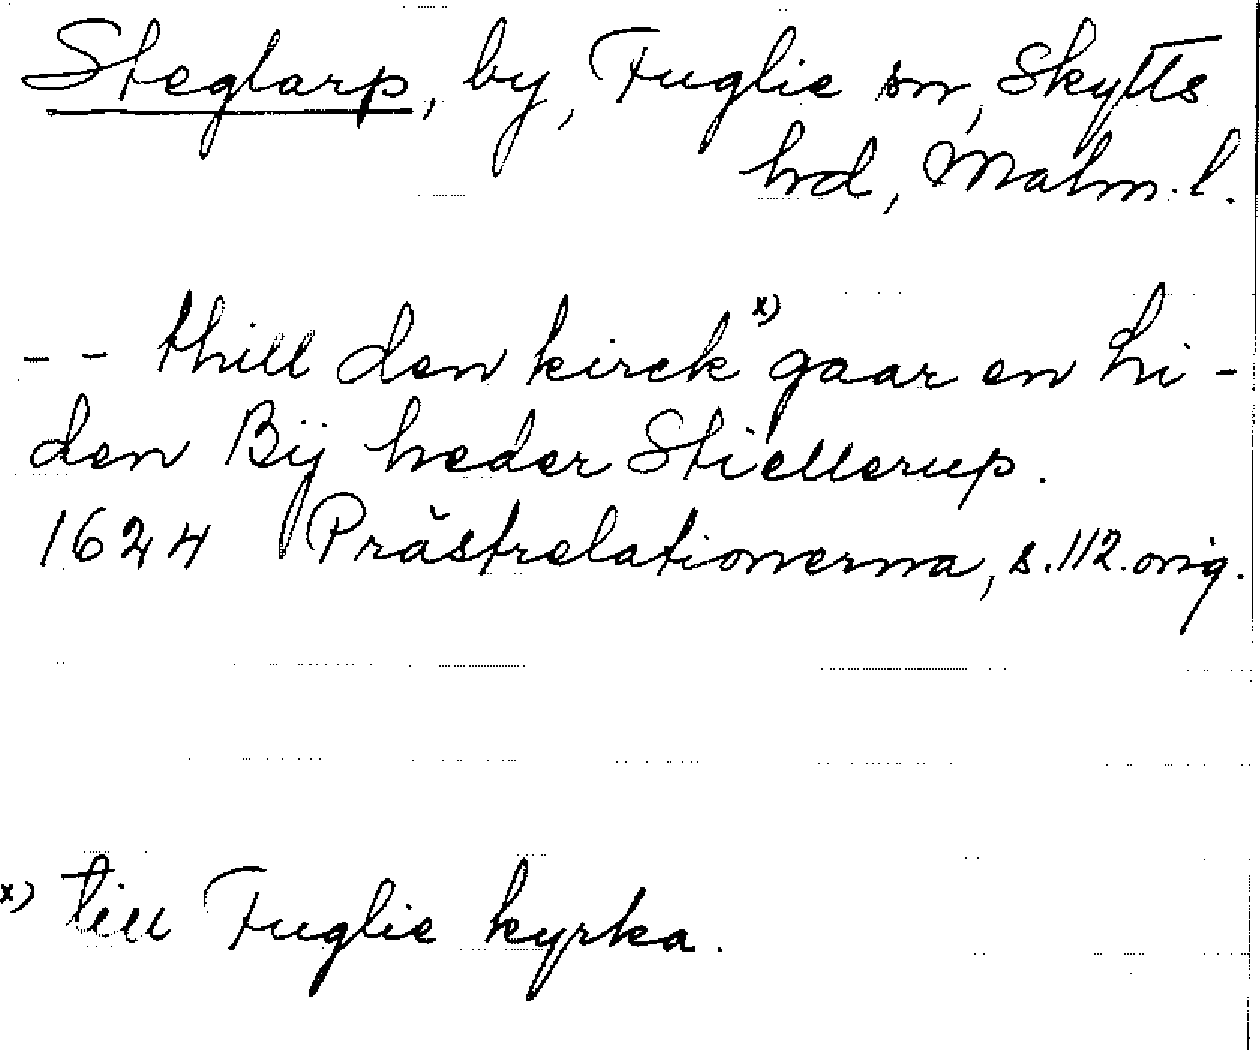 Steglarp, by, Fuglie sn, Skytts
hd, Malm. l.
- - thill den kirck x) gaar en hi-
den Bÿ heder Stiellerup.
1624 Prästrelationerna, s. 112. orig.
x) till Fuglie kyrka.